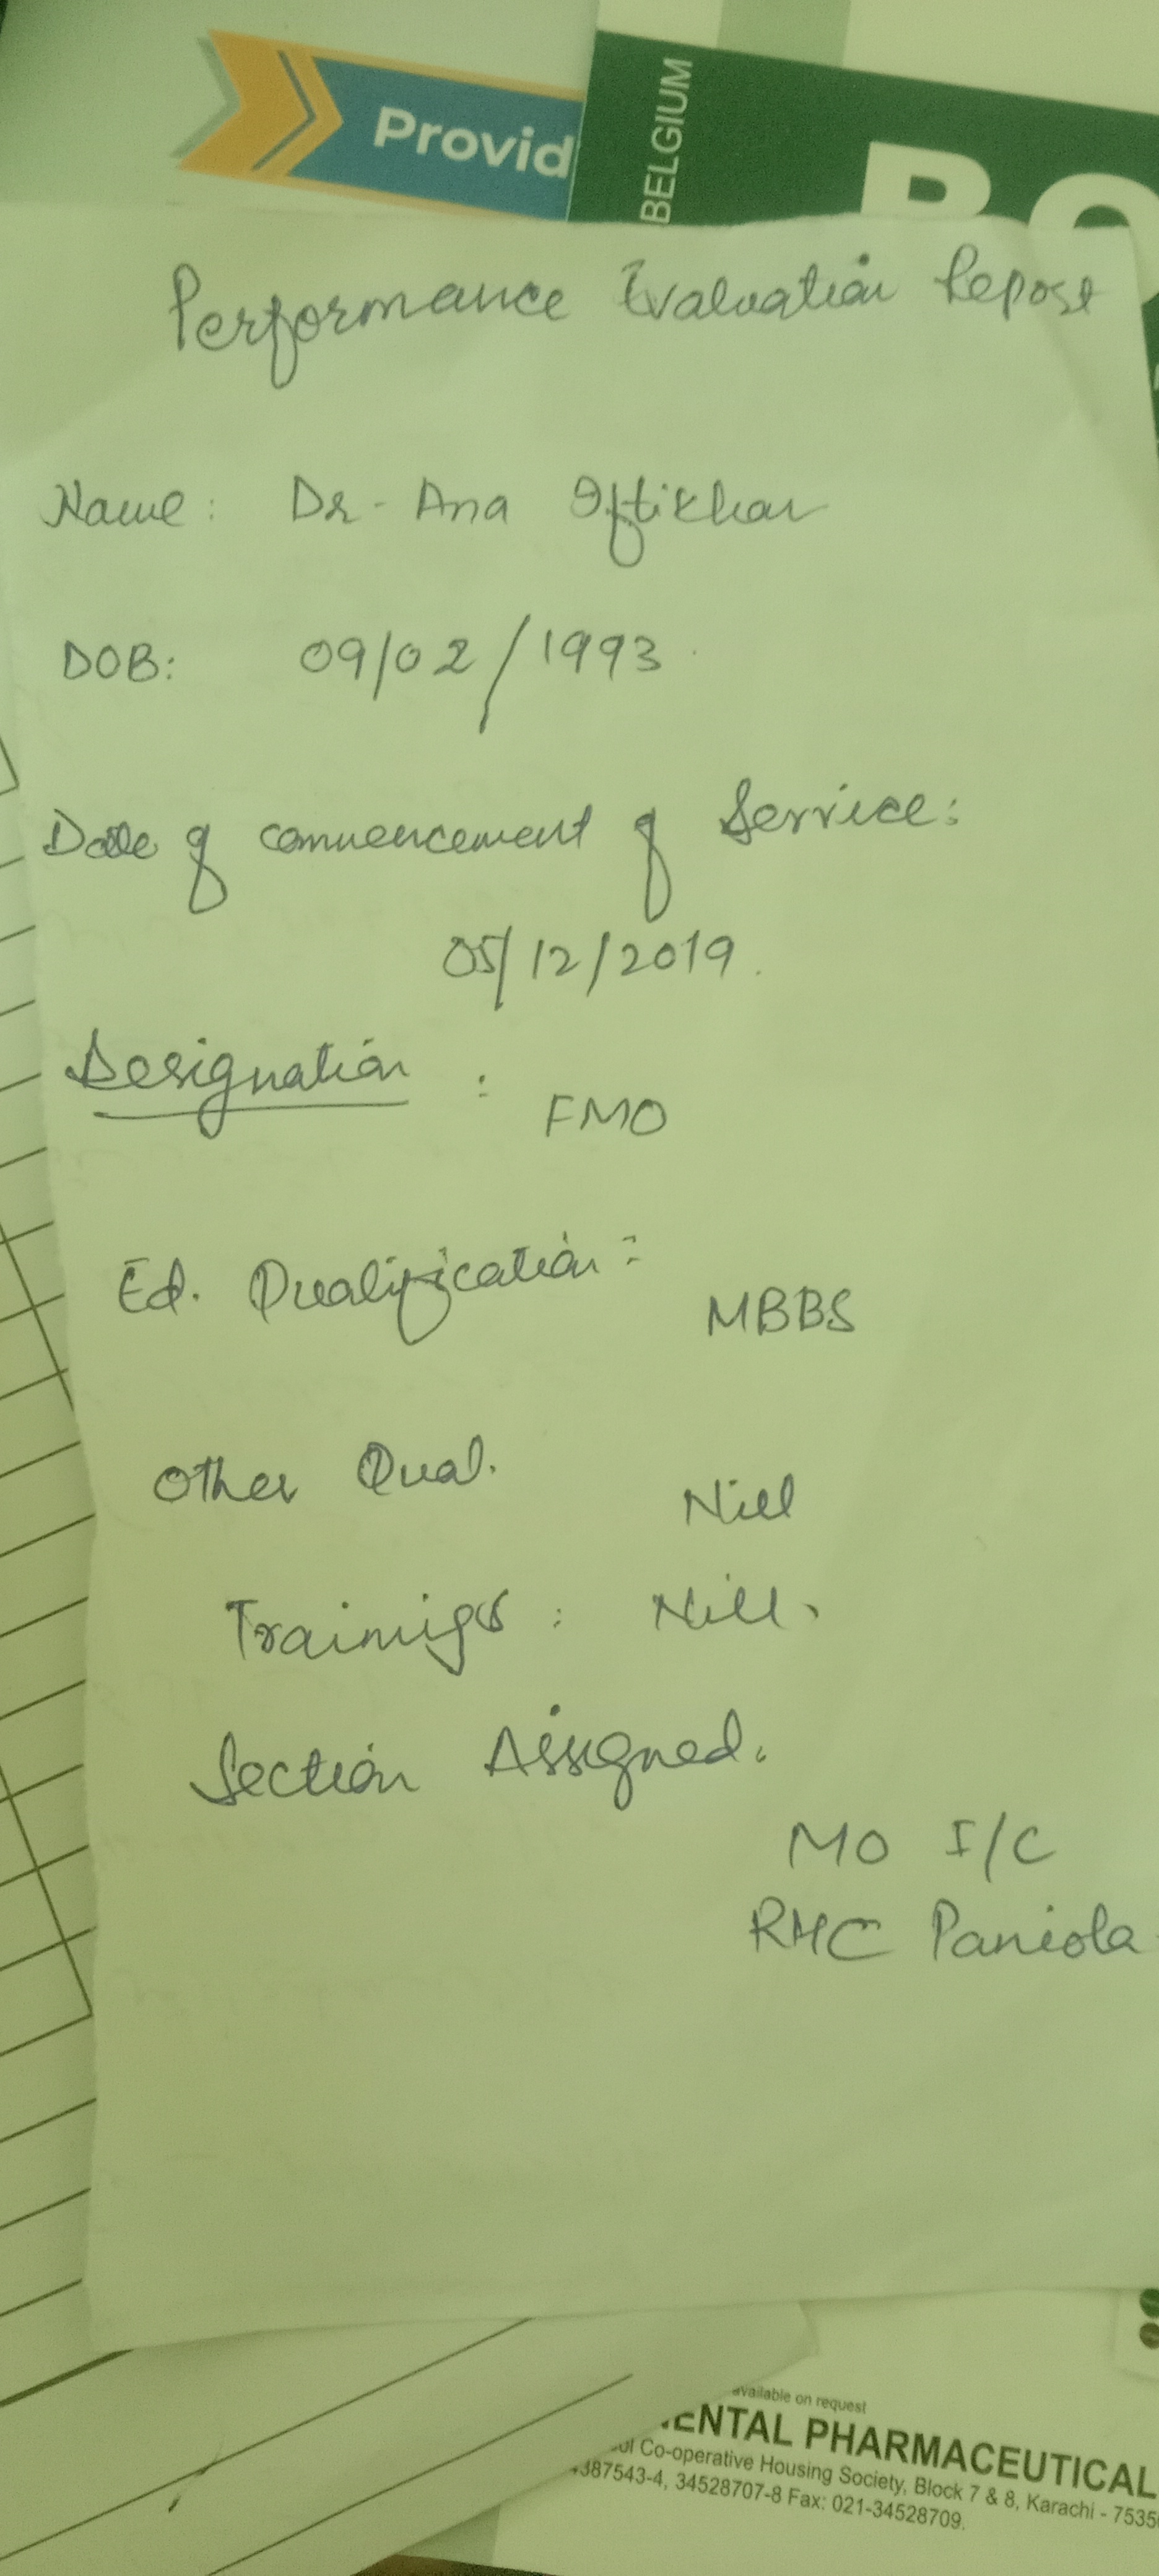 Provid
BELGIUM
Performance Evaluation Report
Name: Dr- Ana Iftikhar
DOB: 09/02/1993
Date of commencement of Service:
05/12/2019.
Designation :
FMO
Ed. Qualification:
MBBS
Other Qual.
Nill
Trainigs : Nill.
Section Assigned.
MO I/C
RHC Paniola
available on request
ENTAL PHARMACEUTICAL
Co-operative Housing Society, Block 7 & 8, Karachi - 7535
387543-4, 34528707-8 Fax: 021-34528709.